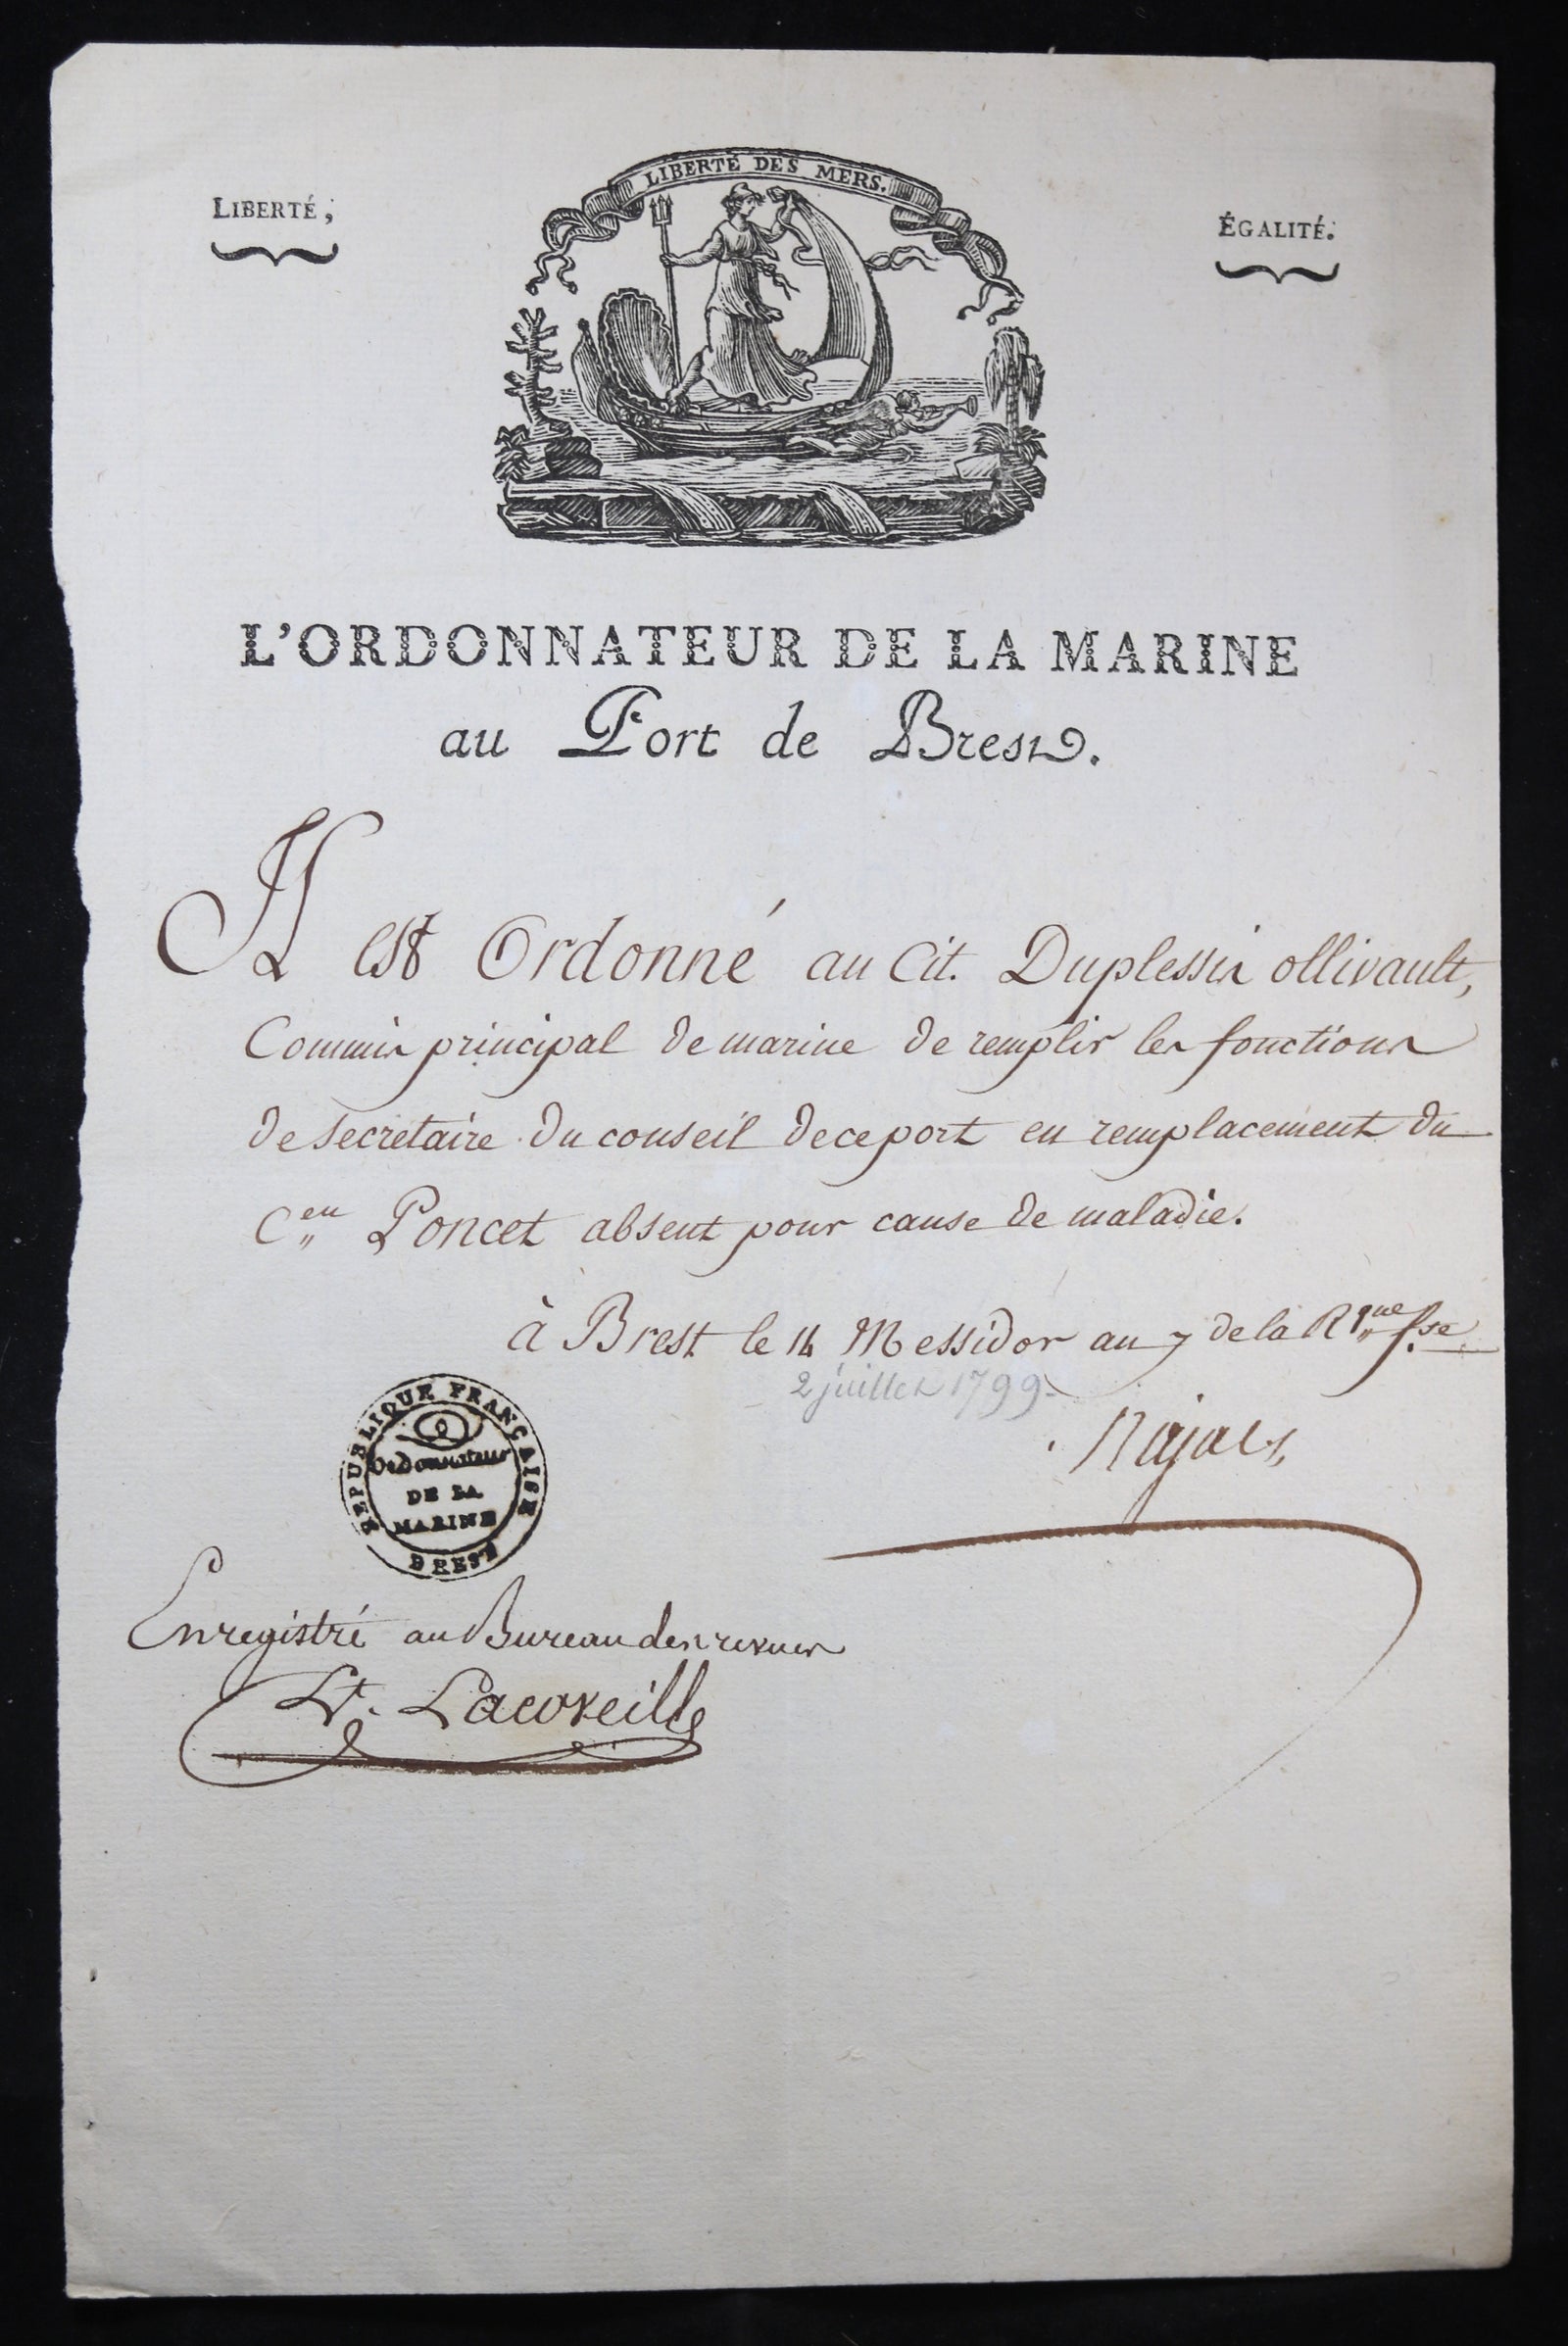 LIBERTÉ DES MERS.
LIBERTÉ,
ÉGALITÉ.
L'ORDONNATEUR DE LA MARINE
au Port de Brest.
Il est Ordonné au Cit. Duplessis ollivault,
Commis principal de marine de remplir les fonctions
de secretaire du conseil de ce port en remplacement du
C.en Poncet absent pour cause de maladie.
à Brest le 14 Messidor an 7 de la Rque fse
2 juillet 1799
Najac
RÉPUBLIQUE FRANÇAISE
Ordonnateur
DE LA
MARINE
BREST
Enregistré au Bureau des revues
Lt. Lacoreille